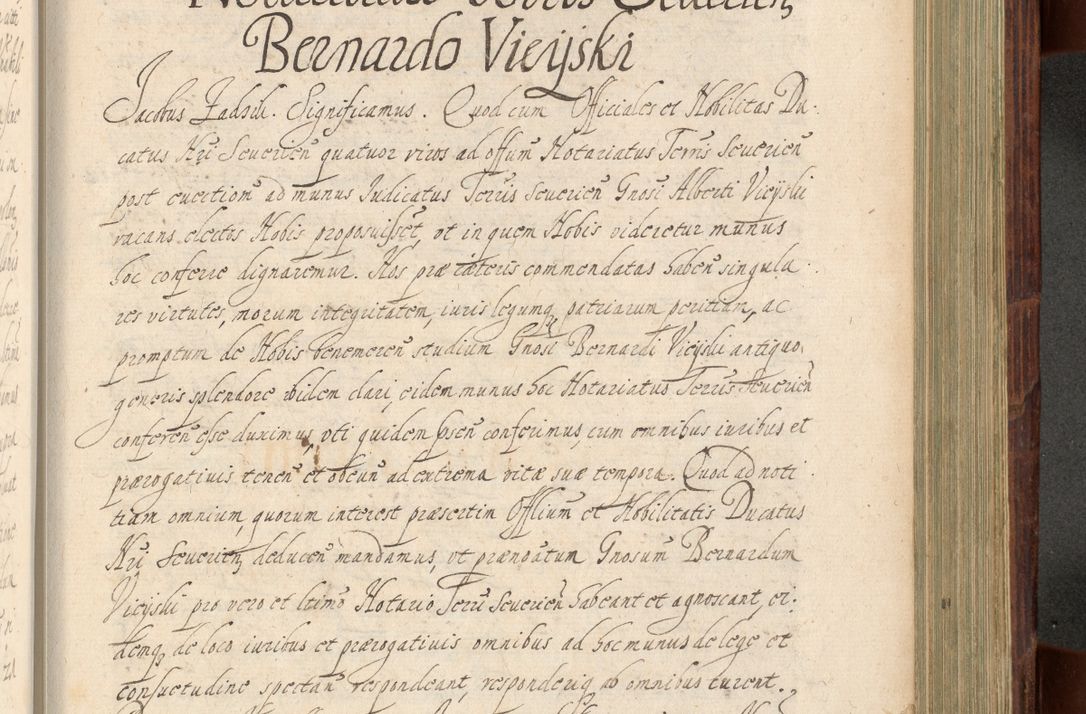 Bernardo Vieÿski
Jacobus Zadzik. Significamus. Quod cum Officiales et Nobilitas Du-
catus Nri Severien̄ quatuor viros ad offum̄ Notariatus Terris Severien̄
post evectionē ad munus Judicatus Terris Severien̄ Gnosi Alberti Vieÿski
vacans electos Nobis proposuisset, vt in quem Nobis videretur munus
hoc conferre dignaremur. Nos præ cæteris commendatas haben̄ singula-
res virtutes, morum integritatem, iuris legumq patriarum peritiam, ac
promptum de Nobis benemeren̄ studium Gnosi Bernardi Vieÿski antiquo
generis splendore ibidem clari, eidem munus hoc Notariatus Terris Severien̄
conferen̄ esse duximus, vti quidem psen̄ conferimus, cum omnibus iuribus et
prærogativis tenen̄ et obeun̄ ad extrema vitæ suæ tempora. Quod ad noti-
tiam omnium quorum interest præsertim Offlium et Nobilitatis Ducatus
Nri Severien̄ deducen̄ mandamus, vt prænōatum Gnosum Bernardum
Vieÿski pro vero et ltimo Notario Terris Severien̄ habeant et agnoscant, ei-
demq de loco iuribus et prærogativis omnibus ad hoc munus de lege et
consuetudine spectan̄ respondeant, responderiq ab omnibus curent.